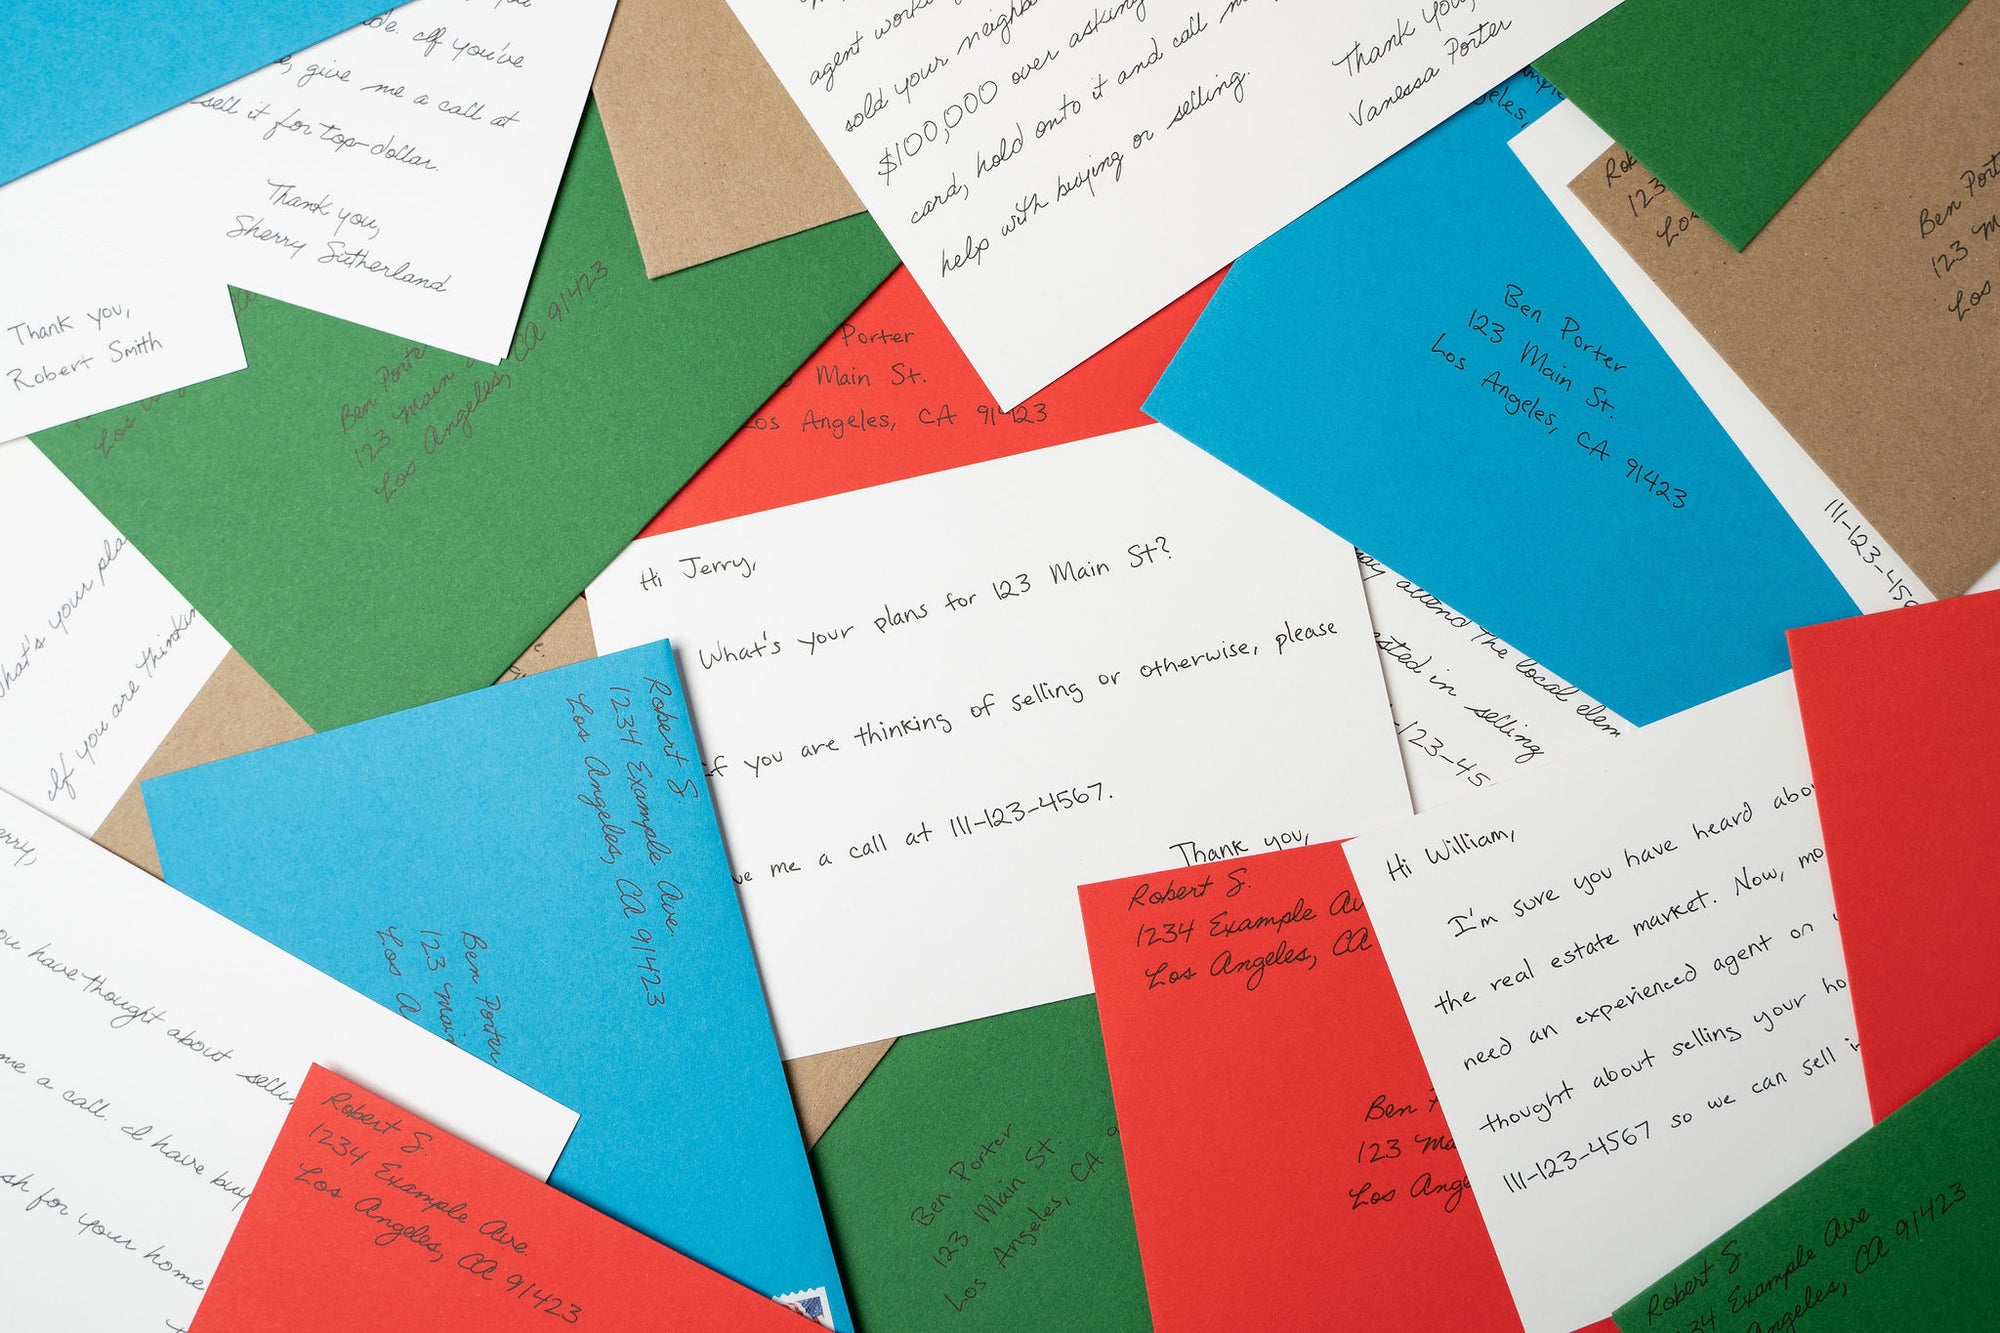 you
If you've
give me a call at
sell it for top-dollar.
Thank you,
Sherry Sutherland
Thank you,
Robert Smith
agent
sold your
$100,000 over asking
card, hold onto it and call
help with buying or selling.
Thank you,
Vanessa Porter
Los
Ben
123 Main
Los Angeles, CA 91423
Porter
Main St.
Los Angeles, CA 91423
Ben Porter
123 Main St.
Los Angeles, CA 91423
123
Ben
123
Los
111-123-45
What's your
If you are
Hi Jerry,
What's your plans for 123 Main St?
If you are thinking of selling or otherwise, please
me a call at 111-123-4567.
Thank you,
attend the local
in selling
-123-45
Robert S.
1234 Example Ave.
Los Angeles, CA 91423
Ben Porter
123 Main
Los A
have thought about
me a call. I have
for your home
Robert S.
1234 Example Ave.
Los Angeles, CA 91423
Ben Porter
123 Main St.
Los Angeles, CA
Robert S.
1234 Example
Los Angeles, CA
Ben
123
Los
Hi William,
I'm sure you have heard
the real estate market. Now,
need an experienced agent on
thought about selling your
111-123-4567 so we can sell
Robert S.
Example Ave.
CA 91423